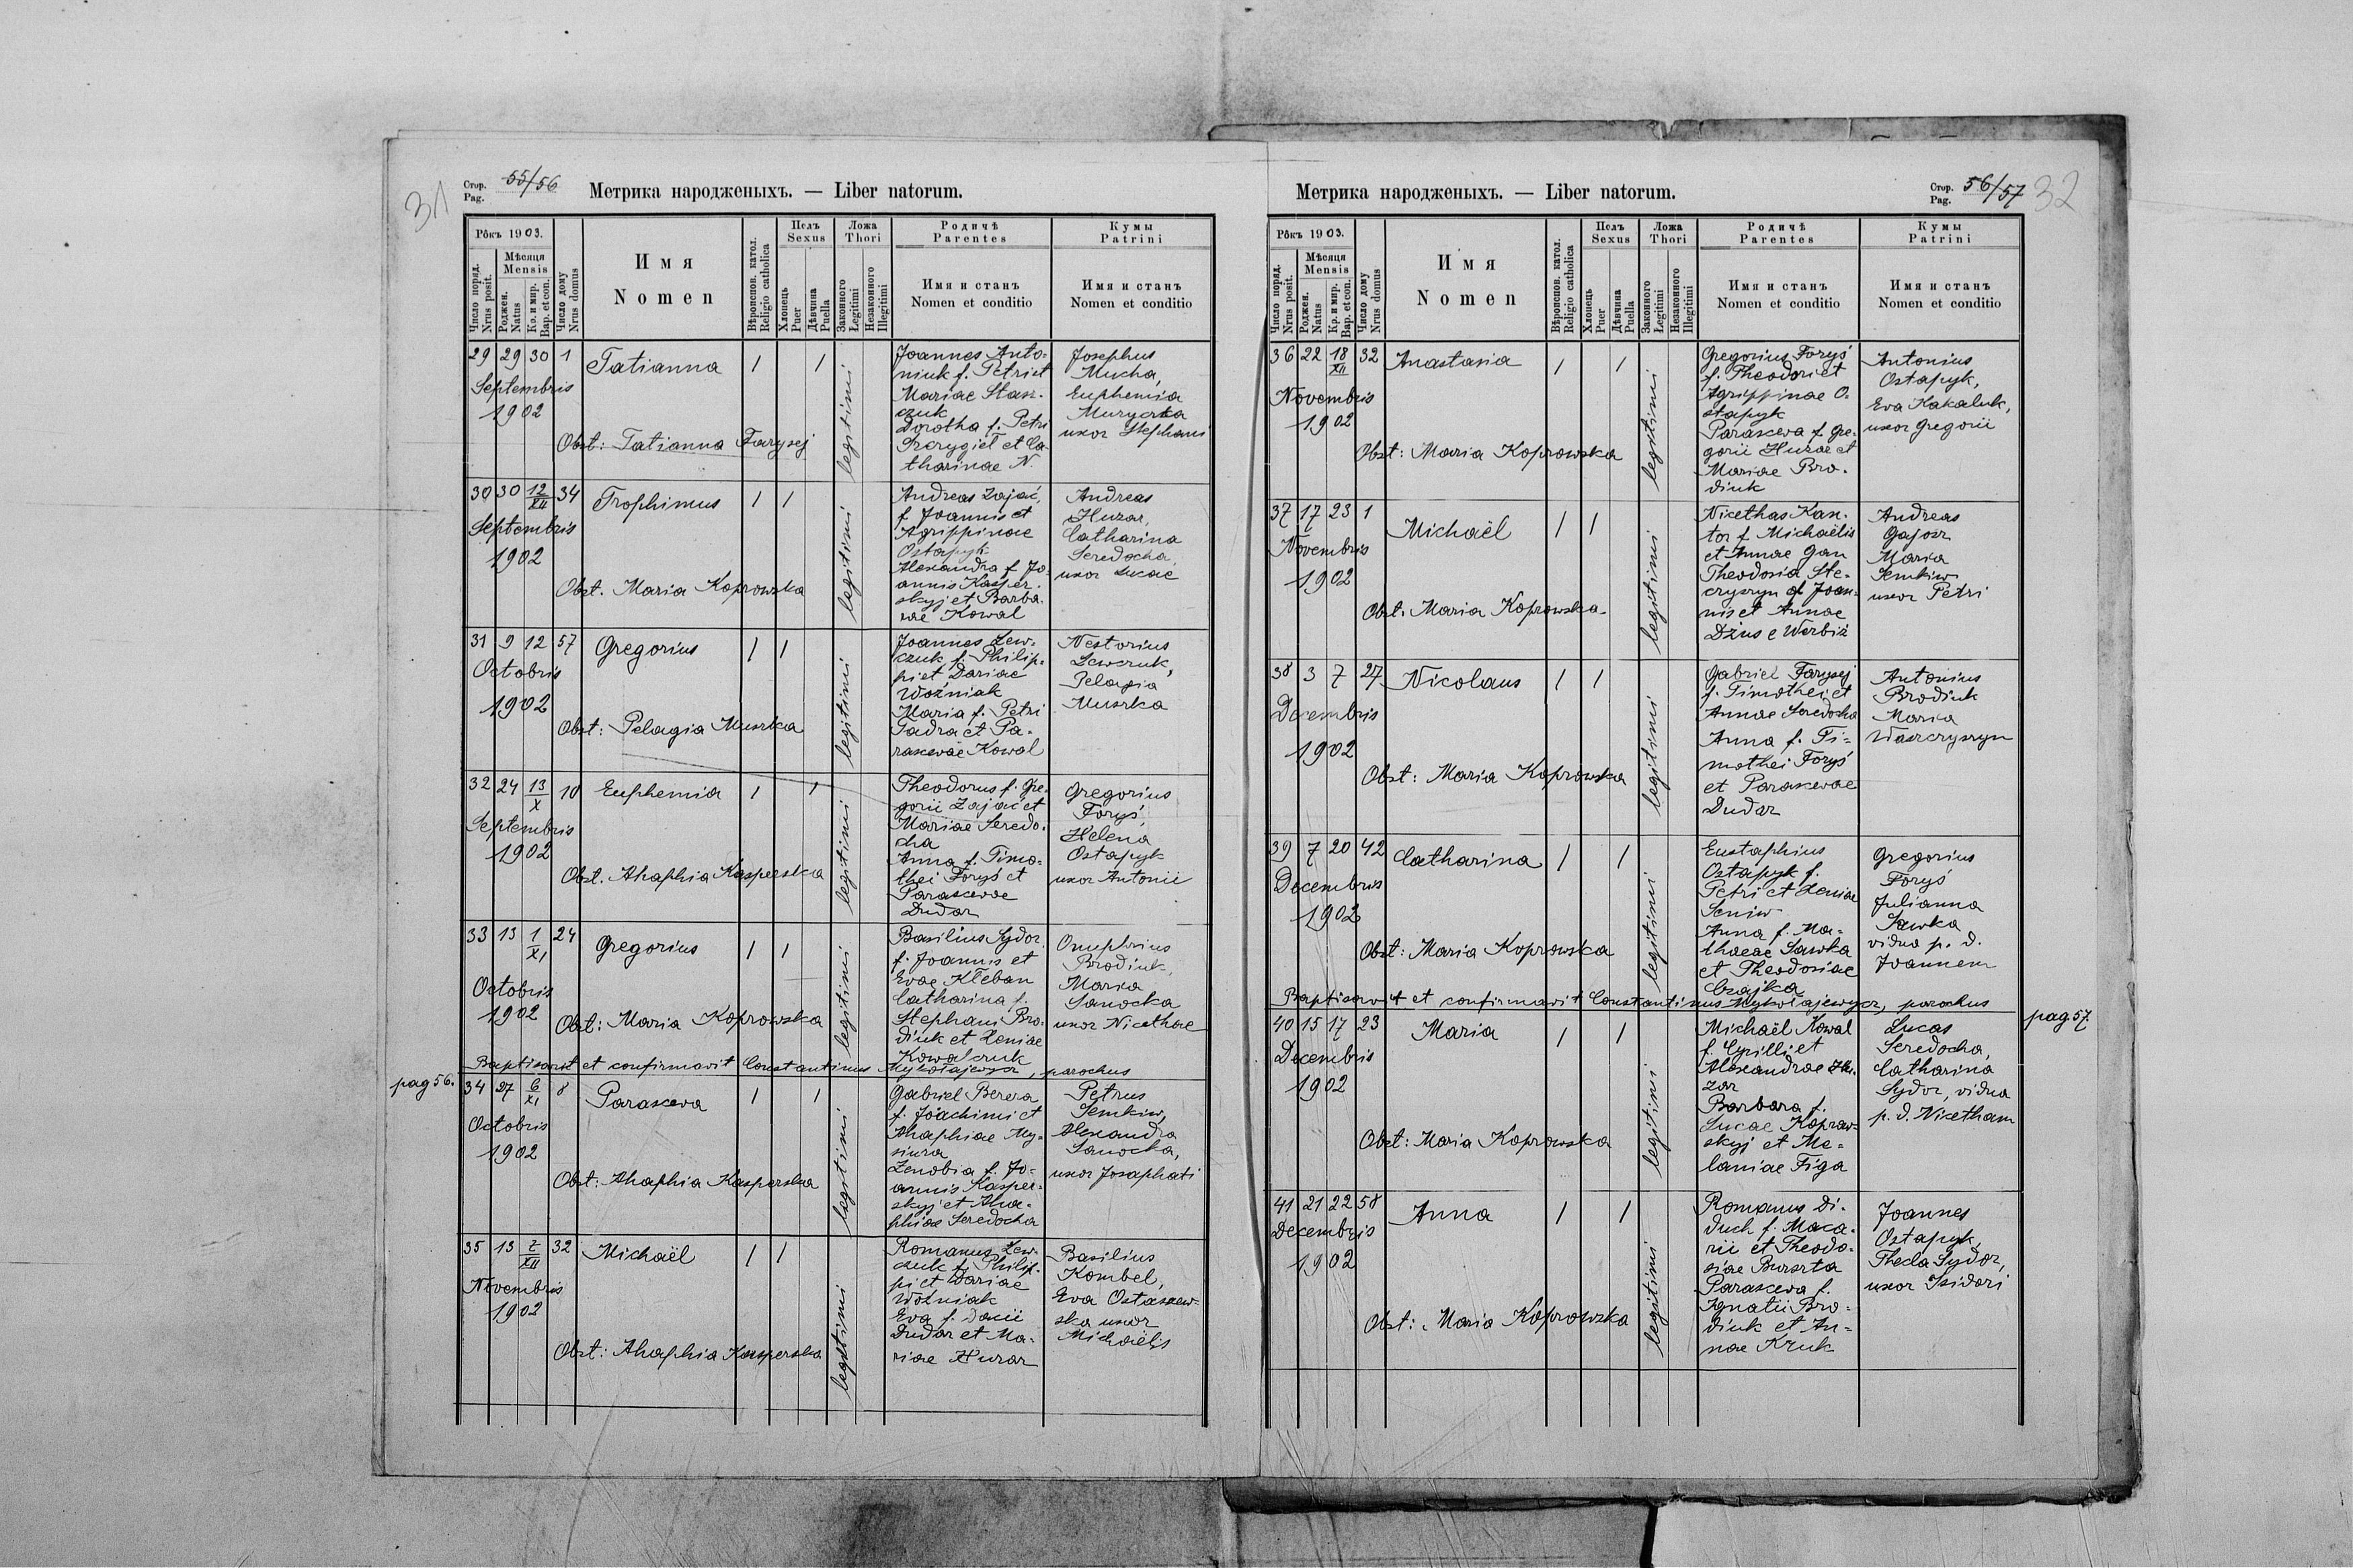 31
Стор. Pag. 55/56
Метрика народженыхъ. — Liber natorum.
Рôкъ 1903.
Число поряд. Nrus posit.
Мѣсяця Mensis
Роджен. Natus
Кр. и мир. Bap. et con.
Число дому Nrus domus
Имя
Nomen
Вѣроиспов. катол. Religio catholica
Полъ Sexus
Хлопець Puer
Дѣвчина Puella
Ложа Thori
Законного Legitimi
Незаконного Illegitimi
Родичѣ
Parentes
Имя и станъ
Nomen et conditio
Кумы
Patrini
Имя и станъ
Nomen et conditio
29 29 30 1 Tatianna / /
Septembris
1902
Obst: Tatianna Farysej
legitimi
Joannes Anto-
niuk f. Petri et
Mariae Stasz-
czuk
Dorotha f. Petri
et Ca-
tharinae N.
Josephus
Mucha,
Euphemia
Muryczka
uxor Stephani
30 30 12/XII 34 Trophimus / /
Septembris
1902
Obst. Maria Koprowska
legitimi
Andreas Zając,
f. Joannis et
Agrippinae
Ostapyk
Alexandra f. Jo-
annis Kasper-
skyj et Barba-
rae Kowal
Andreas
Huzar,
Catharina
Seredocha
uxor Lucae
31 9 12 57 Gregorius / /
Octobris
1902
Obst: Pelagia Muszka
legitimi
Joannes Lew-
czuk f. Philip-
pi et Dariae
Woźniak
Maria f. Petri
Fadra et Pa-
rascevae Kowal
Nestorius
Lewczuk,
Pelagia
Muszka
32 24 13/X 10 Euphemia / /
Septembris
1902
Obst. Ahaphia Kasperska
legitimi
Theodorus f. Gre-
gorii Zając et
Mariae Seredo-
cha
Anna f. Timo-
thei Foryś et
Parascevae
Dudar
Gregorius
Foryś,
Helena
Ostapyk
uxor Antonii
33 13 1/XI 24 Gregorius / /
Octobris
1902
Obst: Maria Koprowska
legitimi
Basilius Sydor
f. Joannis et
Evae Kleban
Catharina f.
Stephani Bro-
diuk et Xeniae
Kowalczuk
Onuphrius
Brodiuk,
Maria
Sanocka
uxor Nicethae
Baptisavit et confirmavit Constantinus Mykołajewycz, parochus
pag 56.
34 27 6/XI 8 Parasceva / /
Octobris
1902
Obst: Ahaphia Kasperska
legitimi
Gabriel Bereza
f. Joachimi et
Ahaphiae My-
siura
Zenobia f. Jo-
annis Kasper-
skyj et Aha-
phiae Seredocha
Petrus
Semkiw,
Alexandra
Sanocka,
uxor Josaphati
35 13 7/XII 32 Michaël / /
Novembris
1902
Obst: Ahaphia Kasperska
legitimi
Romanus Lew-
czuk f. Philip-
pi et Dariae
Woźniak
Eva f. Dacii
Dudar et Ma-
riae Huzar
Basilius
Kombel,
Eva Ostaszew-
ska uxor
Michaëlis
Метрика народженыхъ. — Liber natorum.
Стор. Pag. 56/57
32
Рôкъ 1903.
Число поряд. Nrus posit.
Мѣсяця Mensis
Роджен. Natus
Кр. и мир. Bap. et con.
Число дому Nrus domus
Имя
Nomen
Вѣроиспов. катол. Religio catholica
Полъ Sexus
Хлопець Puer
Дѣвчина Puella
Ложа Thori
Законного Legitimi
Незаконного Illegitimi
Родичѣ
Parentes
Имя и станъ
Nomen et conditio
Кумы
Patrini
Имя и станъ
Nomen et conditio
36 22 18/XII 32 Anastasia / /
Novembris
1902
Obst: Maria Koprowska
legitimi
Gregorius Foryś
f. Theodori et
Agrippinae O-
stapyk
Parasceva f. Gre-
gorii Huzar et
Mariae Bro-
diuk
Antonius
Ostapyk,
Eva Kakaluk,
uxor Gregorii
37 17 23 1 Michaël / /
Novembris
1902
Obst. Maria Koprowska
legitimi
Nicethas Kan-
tor f. Michaëlis
et Annae Gan
Theodosia Ste-
cyszyn f. Joan-
nis et Annae
Dżus e Werbiż
Andreas
Gajosz
Maria
Semkiw
uxor Petri
38 3 7 27 Nicolaus / /
Decembris
1902
Obst: Maria Koprowska
legitimi
Gabriel Farysej
f. Timothei et
Annae Seredocha
Anna f. Ti-
mothei Foryś
et Parascevae
Dudar
Antonius
Brodiuk
Maria
Waszczyszyn
39 7 20 42 Catharina / /
Decembris
1902
Obst: Maria Koprowska
legitimi
Eustaphius
Ostapyk f.
Petri et Xeniae
Seniw
Anna f. Ma-
thaeae Sawka
et Theodosiae
Czajka
Gregorius
Foryś
Julianna
Sawka
vidua p. d.
Joannem
Baptisavit et confirmavit Constantinus Mykołajewycz, parochus
pag 57.
40 15 17 23 Maria / /
Decembris
1902
Obst: Maria Koprowska
legitimi
Michaël Kowal
f. Cyrilli et
Alexandrae Hu-
zar
Barbara f.
Lucae Koprow-
skyj et Me-
laniae Figa
Lucas
Seredocha,
Catharina
Sydor, vidua
p. d. Nicetham
41 21 22 58 Anna / /
Decembris
1902
Obst: Maria Koprowska
legitimi
Romanus Di-
duch f. Maca-
rii et Theodo-
siae Burszta
Parasceva f.
Ignatii Bro-
diuk et An-
nae Kruk
Joannes
Ostapyk,
Thecla Sydor,
uxor Isidori